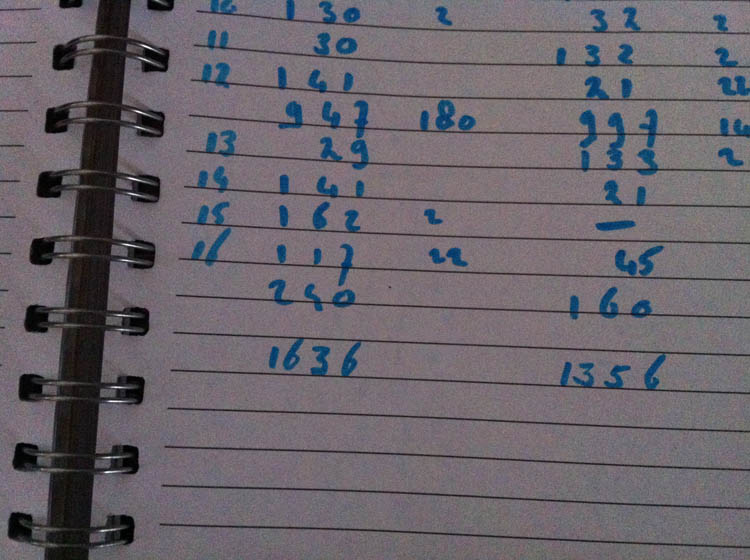 10 130 2 32 2
11 30 132 2
12 141 21 22
947 180 997
13 29 133 2
14 141 21
15 162 2 —
16 117 22 45
240 160
1636 1356